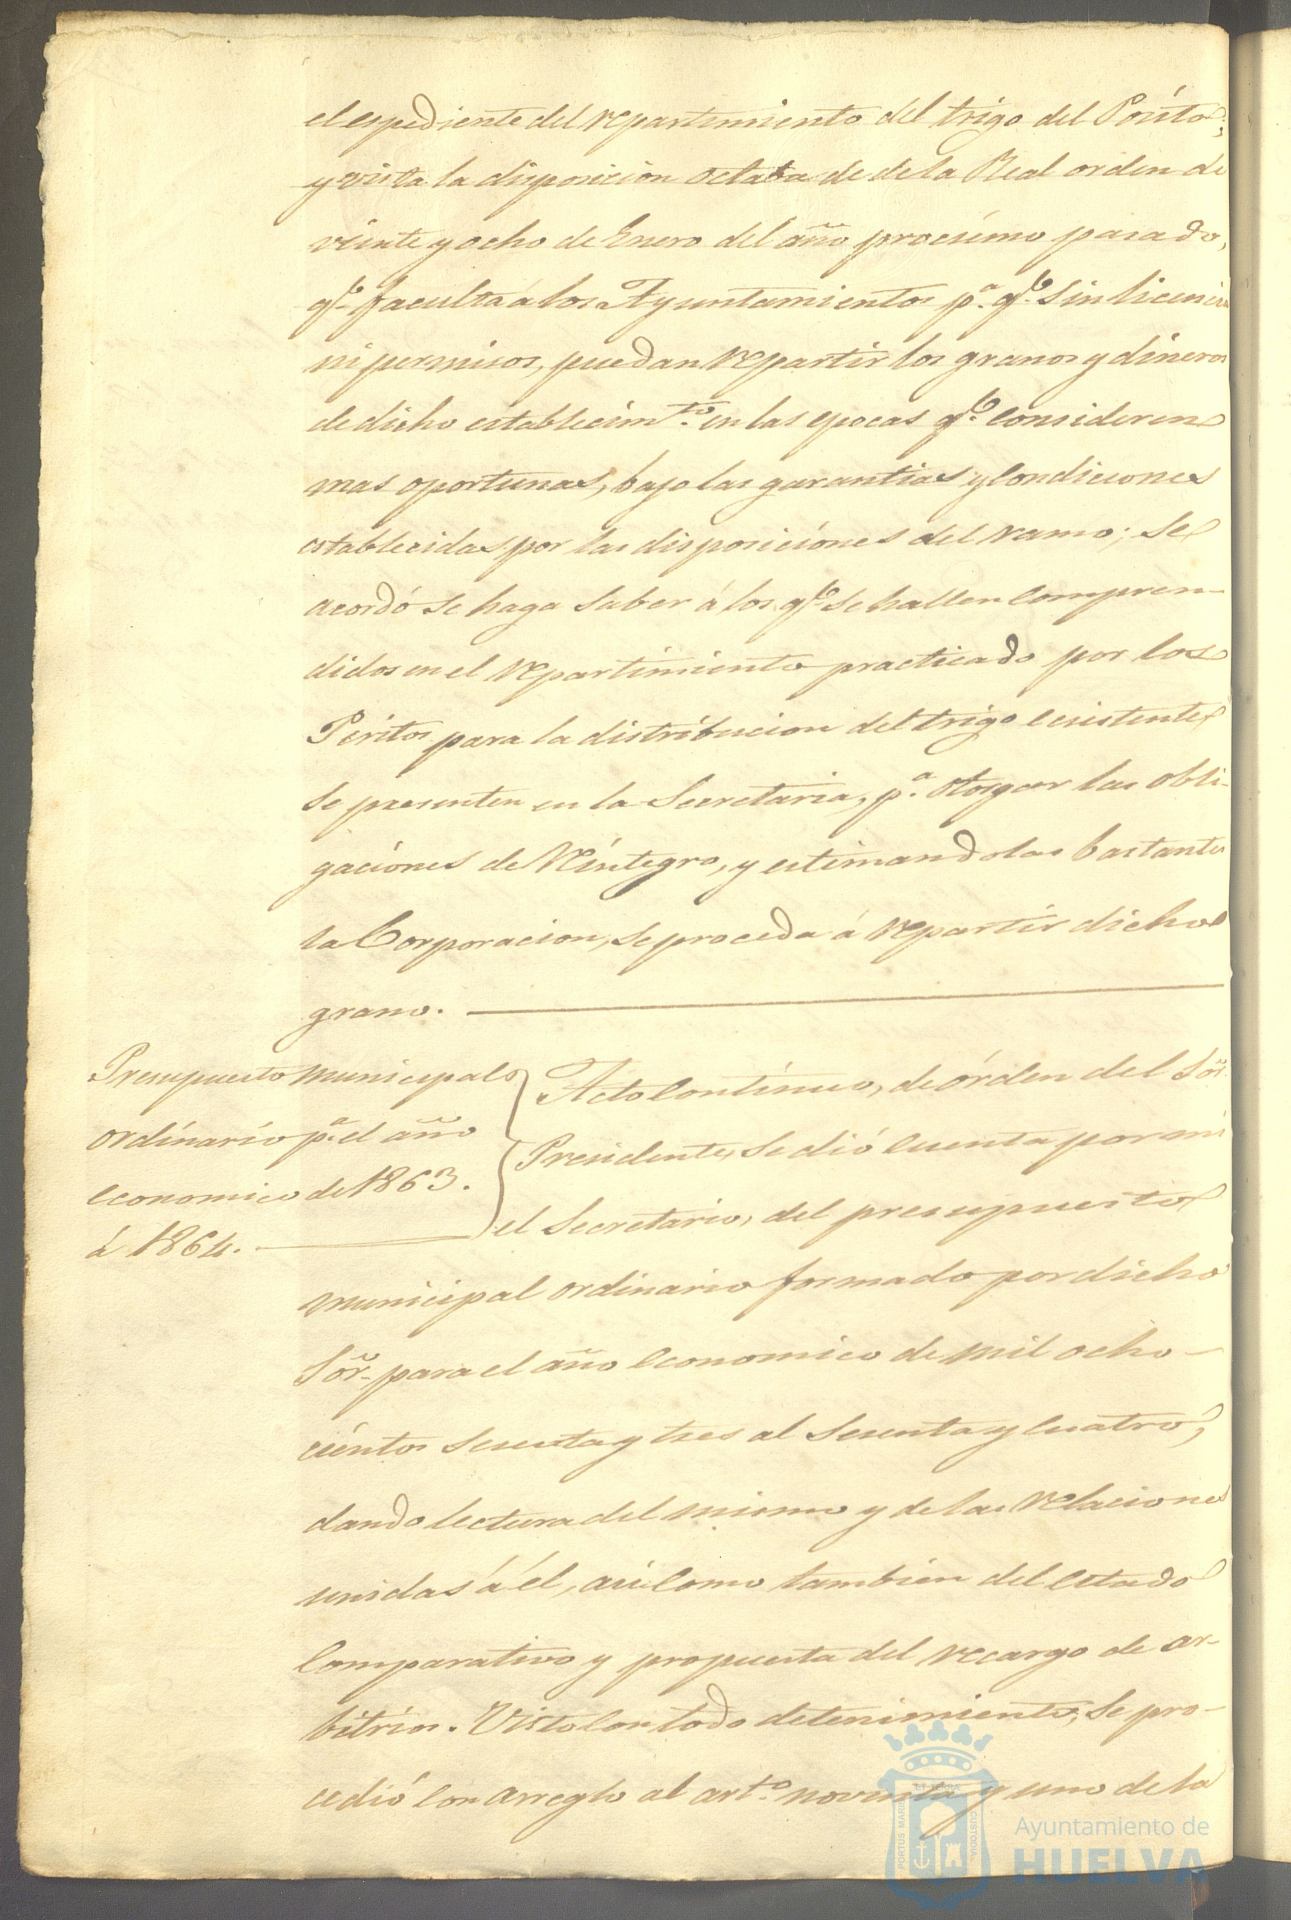 el espediente del repartimiento del trigo del Pósito;
y vista la disposicion octaba de de la Real orden de
veinte y ocho de Enero del año procsímo pasado,
qe. faculta á los Ayuntamientos pa. qe. sin licencia
ni permisos, puedan repartir los granos y dineros
de dicho establecimto. en las epocas qe. consideren
mas oportunas, bajo las garantias y condiciones
establecidas por las disposiciónes del ramo; se
acordó se haga saber á los qe. se hallen compren-
didos en el repartimiento practicado por los
Péritos para la distribucion del trigo ecsistente
se presenten en la Secretaria, pa. otorgar las obli-
gaciónes de reíntegro, y estimandolas bastantes
la Corporacion, se proceda á repartir dicho
grano.
Presupuesto municipal
ordinario pa. el año
economico de 1863.
á 1864.
Acto contínuo, de órden del Sōr.
Presidente, se dió cuenta por mi
el Secretario, del presupuesto
municipal ordinario formado por dicho
Sōr. para el año economico de mil ocho-
ciéntos sesenta y tres al sesenta y cuatro,
dando lectura del mismo y de las relaciones
unidas á él, asi como tambien del estado
comparativo y propuesta del recargo de ar-
bitrios. Visto con todo detenimiento, se pro-
cedió con arreglo al arto. noventa y uno de la
PORTUS MARIS
ET TERRÆ
CUSTODIA
Ayuntamiento de
HUELVA